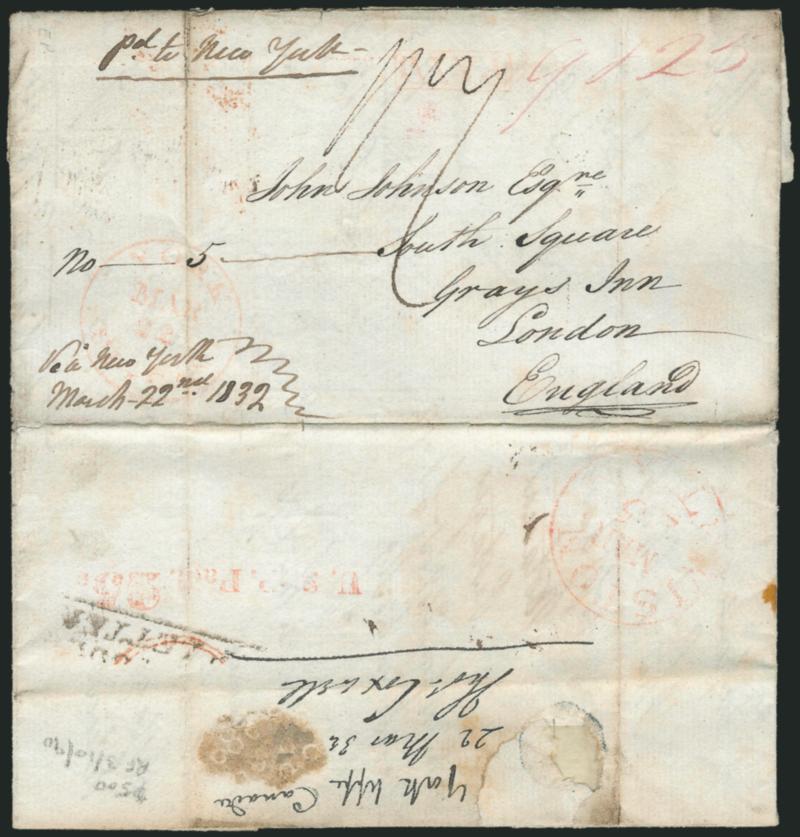 pd to New York
9d 25
John Johnson Esqre
No 5 South Square
Grays Inn
London
England
YORK
MAR
22
Via New York
March 22nd 1832
MAR
U.S. P
LETTER
Thos. Coxwell
22 Mar 32
York Upp. Canada
P500
RF 3/10/90